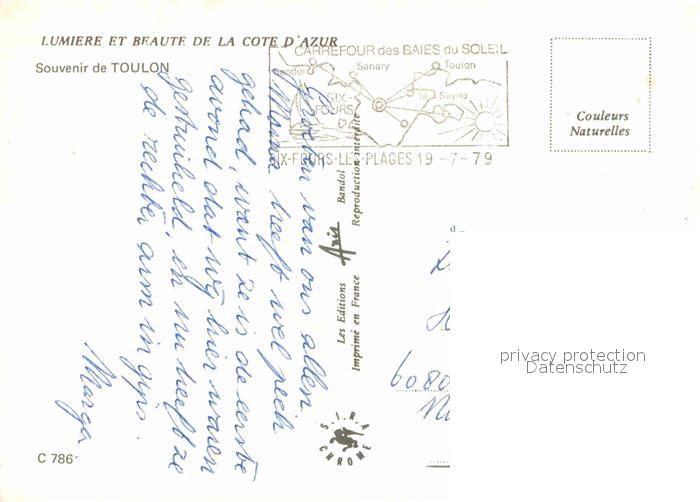 LUMIERE ET BEAUTE DE LA COTE D'AZUR
Souvenir de TOULON
CARREFOUR des BAIES du SOLEIL
Bandol
Sanary
Toulon
SIX-
FOURS
la Seyne
SIX-FOURS-LES-PLAGES 19 -7-79
Couleurs
Naturelles
Groeten van ons allen.
Mama heeft wel pech
gehad, want ze is de eerste
avond dat wij hier waren
gestruikeld, en nu heeft ze
de rechter arm in gips.
Marga
Les Editions Aris Bandol
Imprimé en France Reproduction interdite
S.I.R.A
CHROME
6080
privacy protection
Datenschutz
C 786